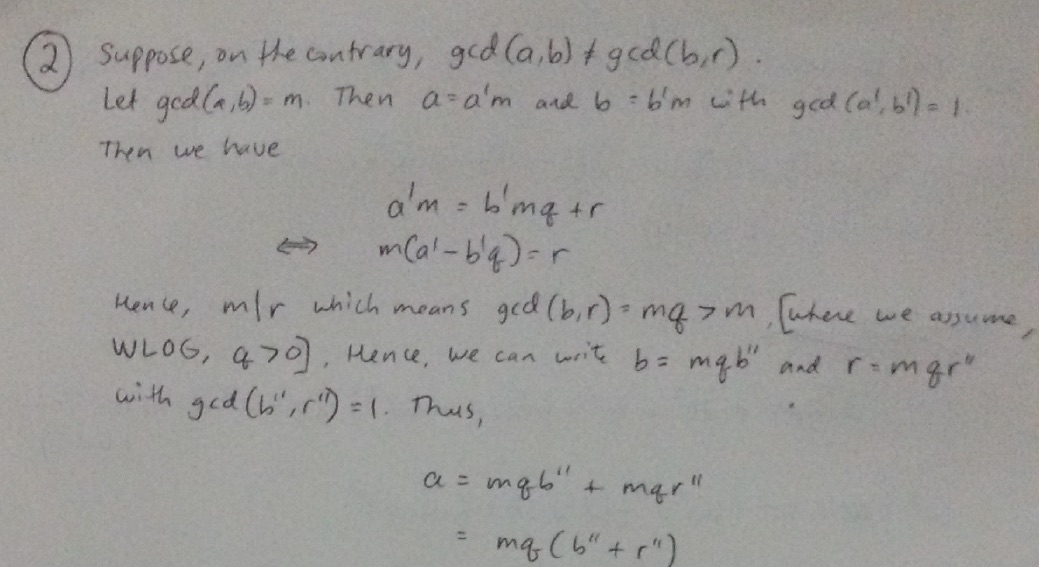 ② Suppose, on the contrary, gcd(a,b) ≠ gcd(b,r).
Let gcd(a,b) = m. Then a = a'm and b = b'm with gcd(a',b') = 1.
Then we have
a'm = b'mq + r
⇔ m(a' - b'q) = r
Hence, m|r which means gcd(b,r) = mq > m, [where we assume,
WLOG, q > 0]. Hence, we can write b = mqb'' and r = mqr''
with gcd(b'',r'') = 1. Thus,
a = mqb'' + mqr''
= mq(b'' + r'')